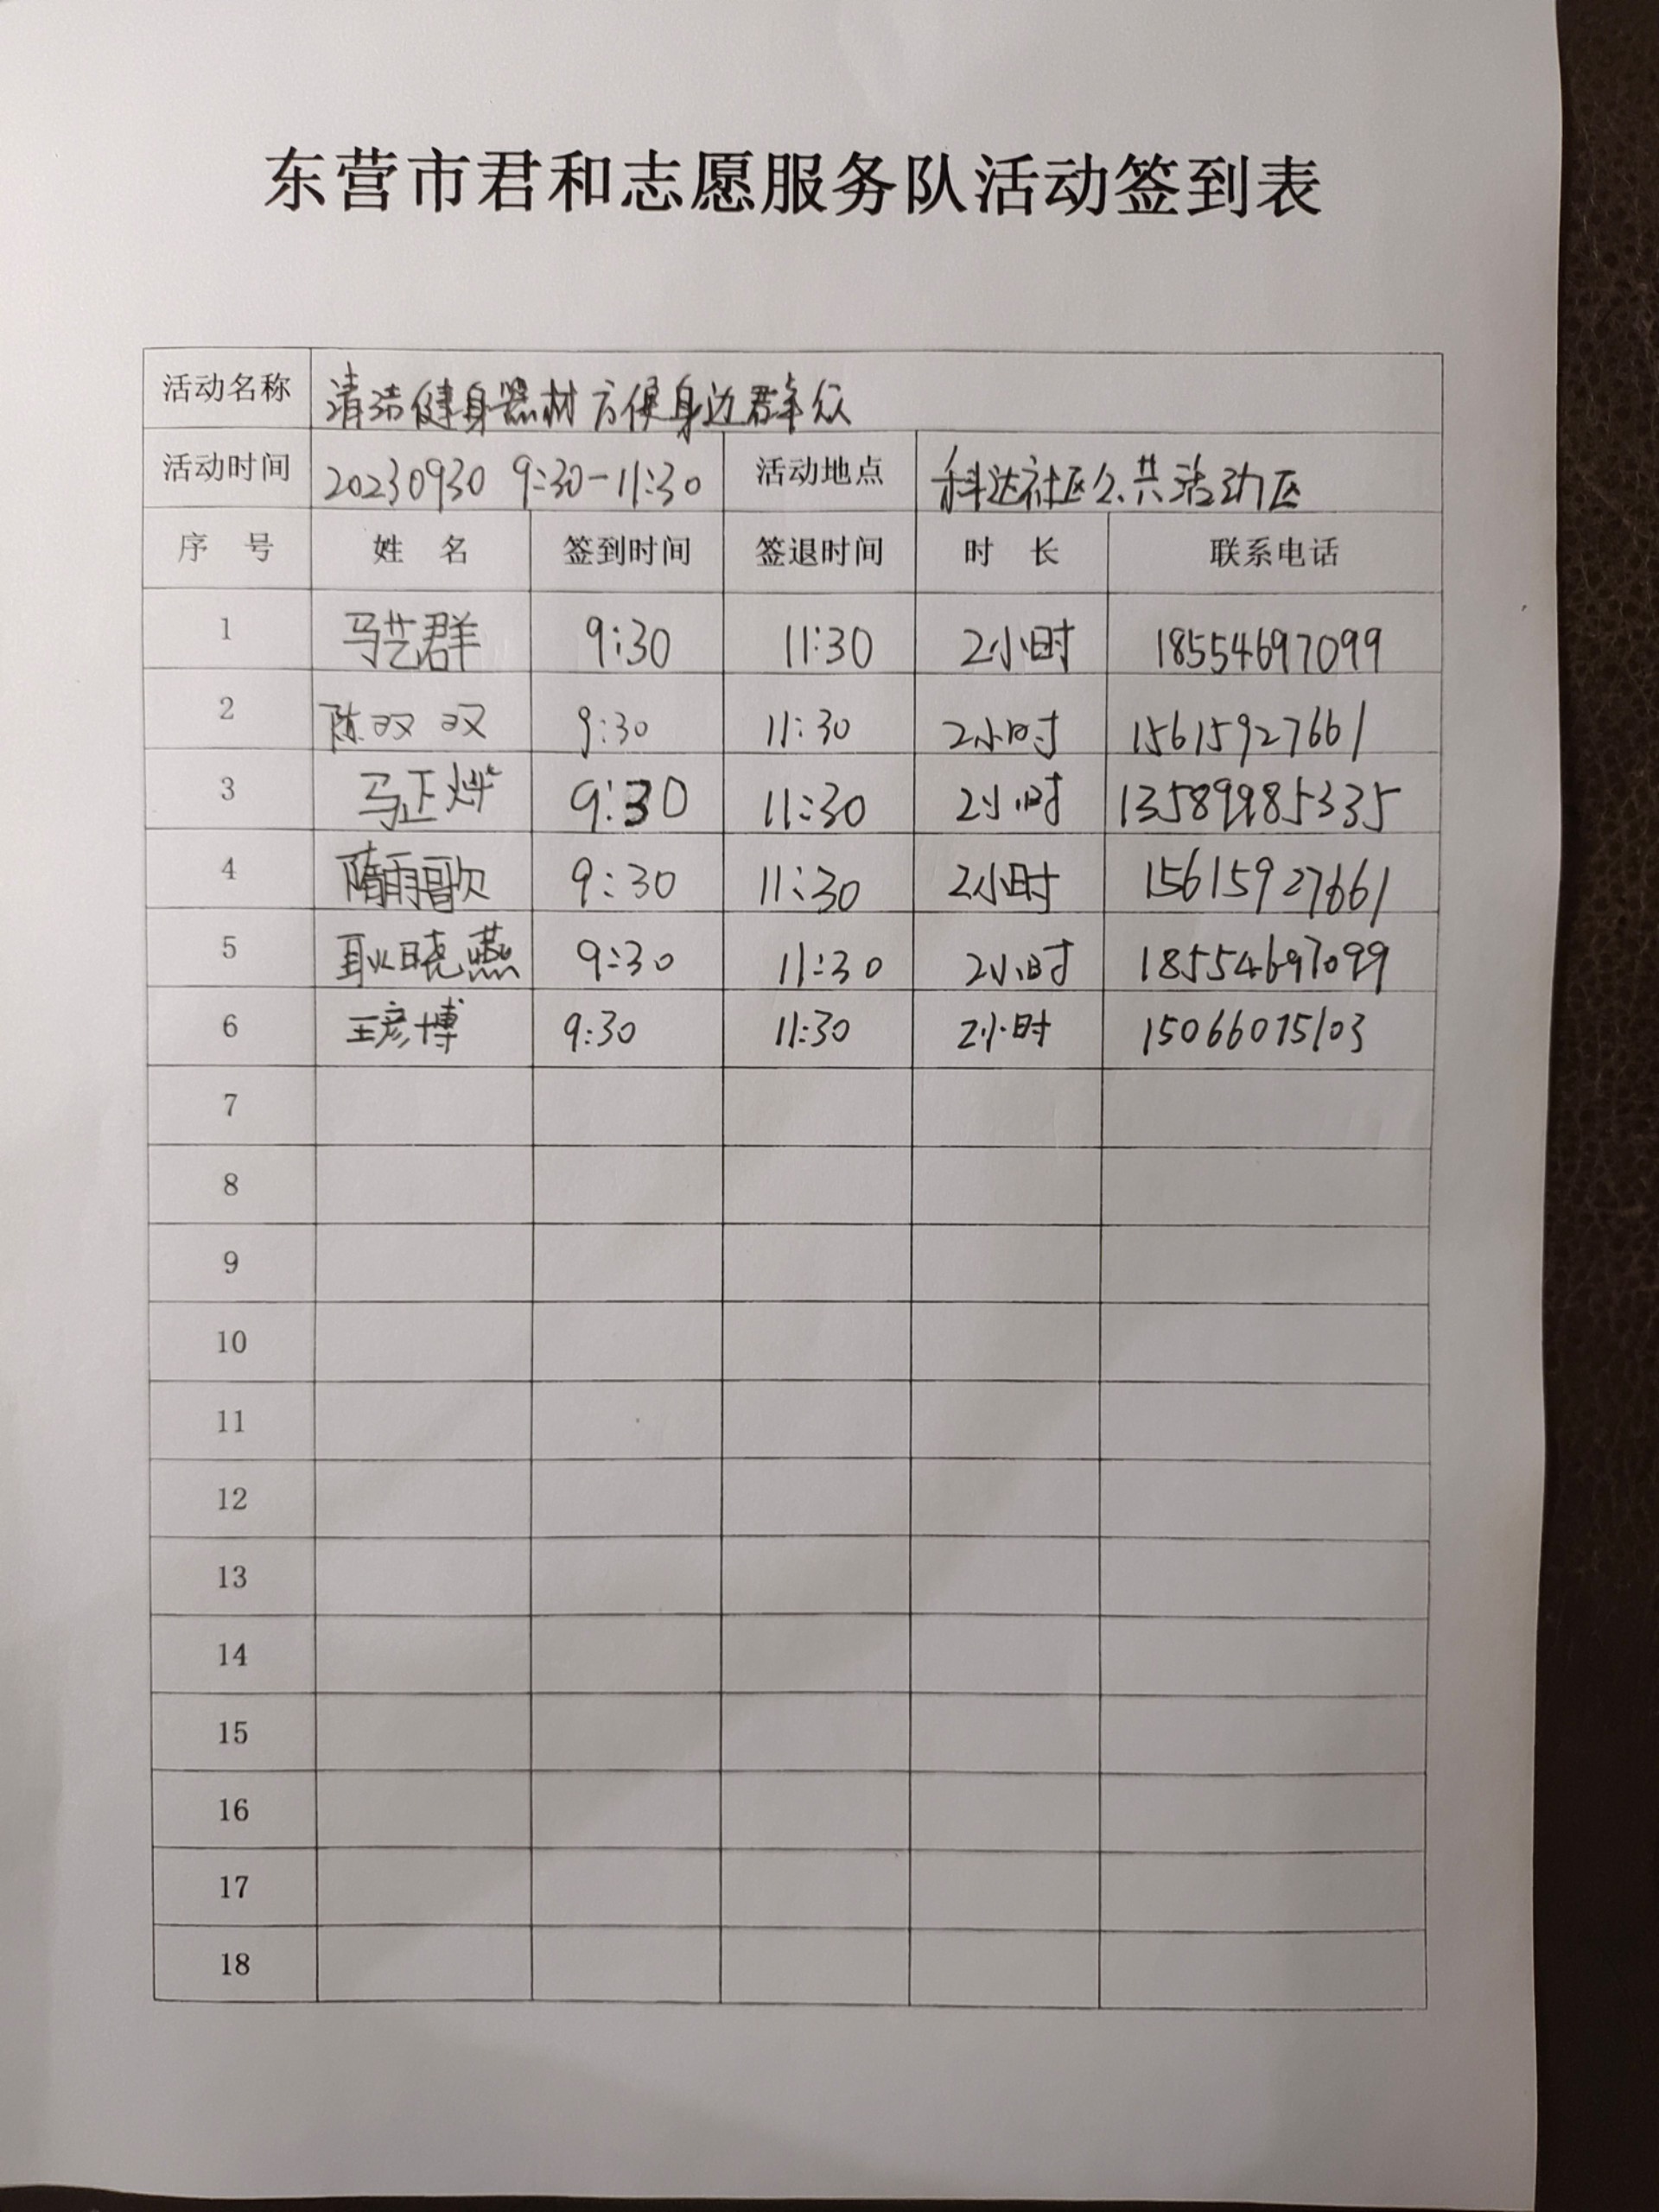 东营市君和志愿服务队活动签到表
活动名称 清洁健身器材方便身边群众
活动时间 20230930 9:30-11:30 活动地点 科达社区公共活动区
序号 姓名 签到时间 签退时间 时长 联系电话
1 马艺群 9:30 11:30 2小时 18554697099
2 陈双双 9:30 11:30 2小时 15615927661
3 马正烨 9:30 11:30 2小时 13589985335
4 隋雨歌 9:30 11:30 2小时 15615927661
5 耿晓燕 9:30 11:30 2小时 18554697099
6 王彦博 9:30 11:30 2小时 15066075103
7
8
9
10
11
12
13
14
15
16
17
18